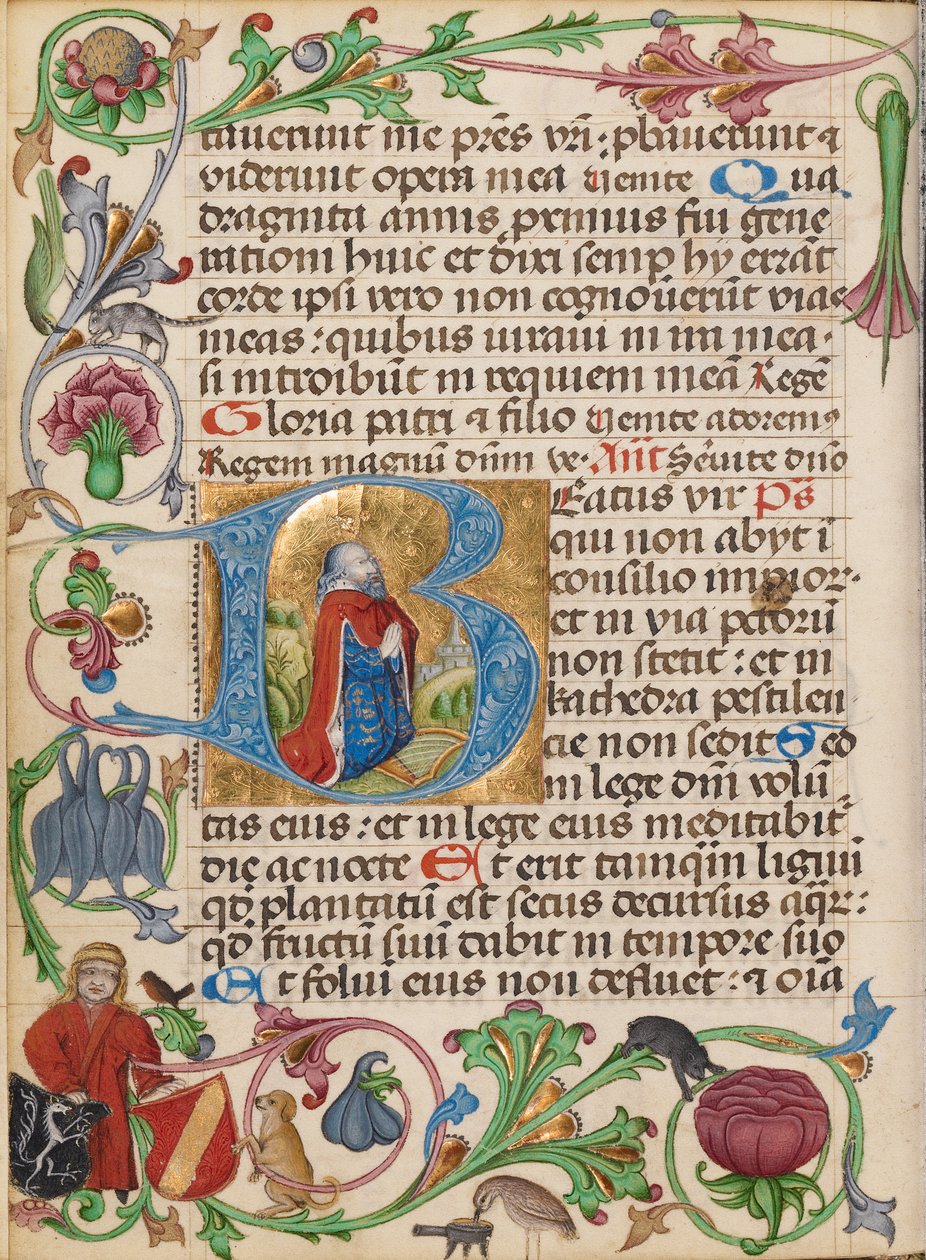 tauerunt me pr̄es vr̄i : ꝓbauerunt ⁊
viderunt opera mea Venite Qua
draginta annis proximus fui gene
rationi huic et dixi semꝑ hij errāt
corde ipsi vero non cognoūerūt vias
meas : quibus iuraui in ira mea ·
si introibūt in requiem meā Regē
Gloria patri ⁊ filio Venite adoremꝰ
Regem magnū dn̄m ve· Añ Sēuite dn̄o
Beatus vir Ps̄
qui non abyt ī
consilio impior·
et in via pctorū
non stetit : et in
kathedra pestilen
cie non sedit Sed
in lege dn̄i volū
tas eius : et in lege eius meditabit᷑
die ac nocte Et erit tamqm̄ lignū
qd̄ plantatū est secus decursus aqr̄ :
qd̄ fructū suū dabit in tempore suo
Et foliū eius non defluet : ⁊ oīa